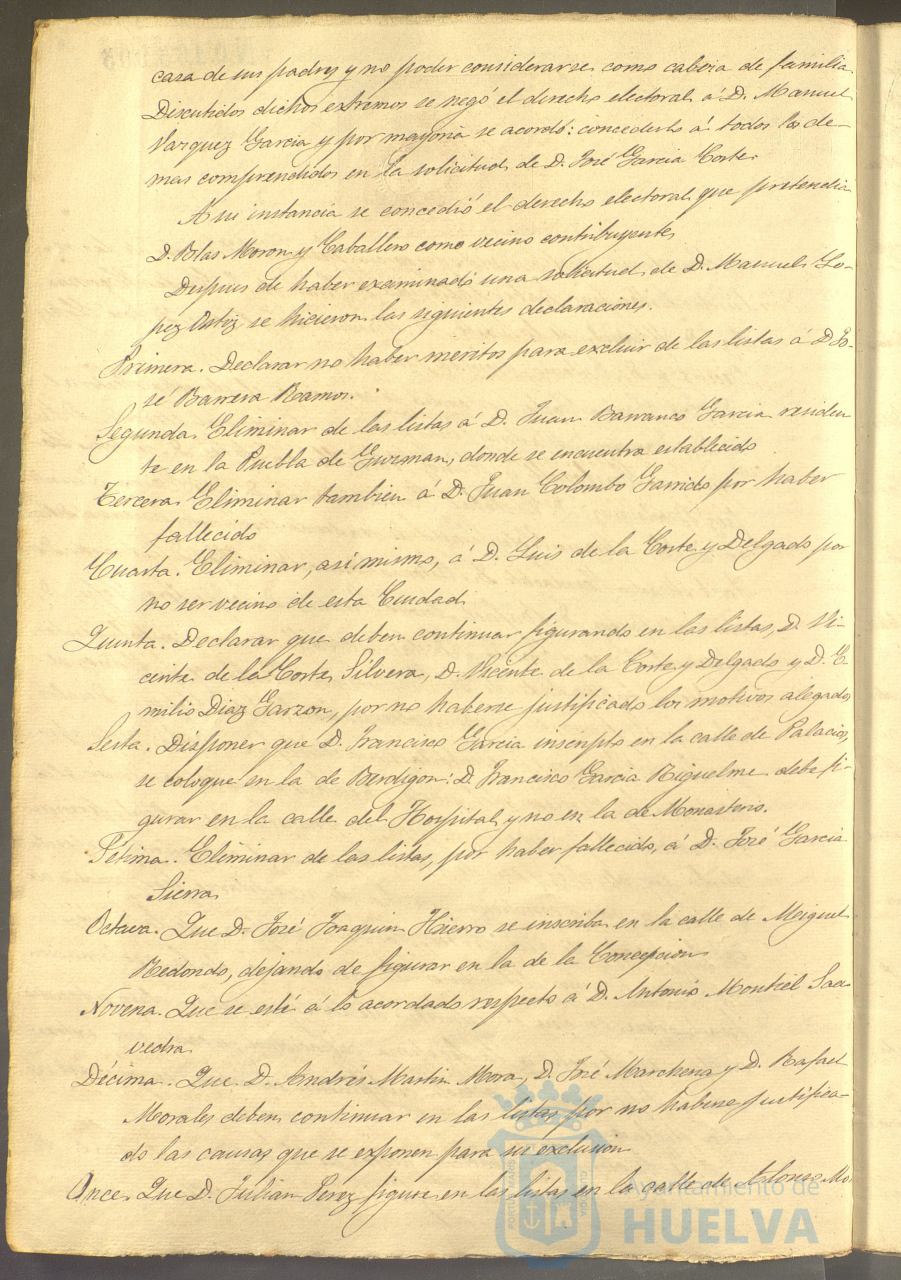 casa de sus padres y no poder considerarse como cabeza de familia.
Discutidos dichos extremos se negó el derecho electoral á D. Manuel
Vazquez Garcia y por mayoria se acordó: concederlo á todos los de-
mas comprendidos en la solicitud de D. José Garcia Corte.
A su instancia se concedió el derecho electoral que pretendia
D. Blas Moron y Caballero como vecino contribuyente
Despues de haber examinado una solicitud de D. Manuel Lo-
pez Ortiz, se hicieron las siguientes declaraciones.
Primera. Declarar no haber meritos para excluir de las listas á D. Jo-
sé Barrera Ramos.
Segunda. Eliminar de las listas á D. Juan Barranco Garcia residen
te en la Puebla de Guzman, donde se encuentra establecido
Tercera. Eliminar tambien á D. Juan Colombo Garrido por haber
fallecido
Cuarta. Eliminar, asi mismo, á D. Luis de la Corte y Delgado por
no ser vecino de esta Ciudad.
Quinta. Declarar que deben continuar figurando en las listas, D. Vi-
cente de la Corte Silvera, D. Vicente de la Corte y Delgado y D. E
milio Diaz Garzon, por no haberse justificado los motivos alegados
Sesta. Disponer que D. Francisco Garcia inscripto en la calle de Palacios,
se coloque en la de Berdigon: D. Francisco Garcia Riguelme debe fi-
gurar en la calle del Hospital y no en la de Monasterio.
Setima. Eliminar de las listas, por haber fallecido, á D. José Garcia
Sierra
Octava. Que D. José Joaquin Hierro se inscriba en la calle de Miguel
Redondo, dejando de figurar en la de la Concepcion
Novena. Que se esté á lo acordado respecto á D. Antonio Montiel Saa
vedra.
Décima. Que D. Andrés Martin Mora, D. José Marchena y D. Rafael
Morales deben continuar en las listas por no haberse justifica-
do las causas que se exponen para su exclusion
Once. Que D. Julian Perez figure en las listas en la calle de Alonso Mo
Ayuntamiento de
HUELVA